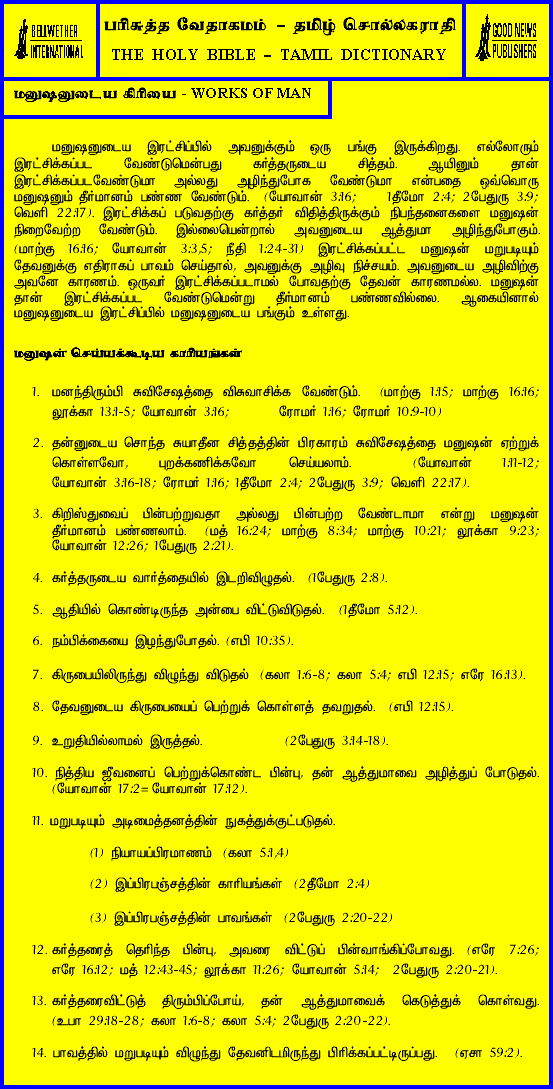 BELLWETHER
INTERNATIONAL
பரிசுத்த வேதாகமம் – தமிழ் சொல்லகராதி
THE HOLY BIBLE – TAMIL DICTIONARY
GOOD NEWS
PUBLISHERS
மனுஷனுடைய கிரியை - WORKS OF MAN
மனுஷனுடைய இரட்சிப்பில் அவனுக்கும் ஒரு பங்கு இருக்கிறது. எல்லோரும்
இரட்சிக்கப்பட வேண்டுமென்பது கர்த்தருடைய சித்தம். ஆயினும் தான்
இரட்சிக்கப்படவேண்டுமா அல்லது அழிந்துபோக வேண்டுமா என்பதை ஒவ்வொரு
மனுஷனும் தீர்மானம் பண்ண வேண்டும். (யோவான் 3:16; 1தீமோ 2:4; 2பேதுரு 3:9;
வெளி 22:17). இரட்சிக்கப் படுவதற்கு கர்த்தர் விதித்திருக்கும் நிபந்தனைகளை மனுஷன்
நிறைவேற்ற வேண்டும். இல்லையென்றால் அவனுடைய ஆத்துமா அழிந்துபோகும்.
(மாற்கு 16:16; யோவான் 3:3,5; நீதி 1:24-31) இரட்சிக்கப்பட்ட மனுஷன் மறுபடியும்
தேவனுக்கு எதிராகப் பாவம் செய்தால், அவனுக்கு அழிவு நிச்சயம். அவனுடைய அழிவிற்கு
அவனே காரணம். ஒருவர் இரட்சிக்கப்படாமல் போவதற்கு தேவன் காரணமல்ல. மனுஷன்
தான் இரட்சிக்கப்பட வேண்டுமென்று தீர்மானம் பண்ணவில்லை. ஆகையினால்
மனுஷனுடைய இரட்சிப்பில் மனுஷனுடைய பங்கும் உள்ளது.
மனுஷன் செய்யக்கூடிய காரியங்கள்
1. மனந்திரும்பி சுவிசேஷத்தை விசுவாசிக்க வேண்டும். (மாற்கு 1:15; மாற்கு 16:16;
லூக்கா 13:1-5; யோவான் 3:16; ரோமர் 1:16; ரோமர் 10:9-10)
2. தன்னுடைய சொந்த சுயாதீன சித்தத்தின் பிரகாரம் சுவிசேஷத்தை மனுஷன் ஏற்றுக்
கொள்ளவோ, புறக்கணிக்கவோ செய்யலாம். (யோவான் 1:11-12;
யோவான் 3:16-18; ரோமர் 1:16; 1தீமோ 2:4; 2பேதுரு 3:9; வெளி 22:17).
3. கிறிஸ்துவைப் பின்பற்றுவதா அல்லது பின்பற்ற வேண்டாமா என்று மனுஷன்
தீர்மானம் பண்ணலாம். (மத் 16:24; மாற்கு 8:34; மாற்கு 10:21; லூக்கா 9:23;
யோவான் 12:26; 1பேதுரு 2:21).
4. கர்த்தருடைய வார்த்தையில் இடறிவிழுதல். (1பேதுரு 2:8).
5. ஆதியில் கொண்டிருந்த அன்பை விட்டுவிடுதல். (1தீமோ 5:12).
6. நம்பிக்கையை இழந்துபோதல். (எபி 10:35).
7. கிருபையிலிருந்து விழுந்து விடுதல் (கலா 1:6-8; கலா 5:4; எபி 12:15; எரே 16:13).
8. தேவனுடைய கிருபையைப் பெற்றுக் கொள்ளத் தவறுதல். (எபி 12:15).
9. உறுதியில்லாமல் இருத்தல். (2பேதுரு 3:14-18).
10. நித்திய ஜீவனைப் பெற்றுக்கொண்ட பின்பு, தன் ஆத்துமாவை அழித்துப் போடுதல்.
(யோவான் 17:2= யோவான் 17:12).
11. மறுபடியும் அடிமைத்தனத்தின் நுகத்துக்குட்படுதல்.
(1) நியாயப்பிரமாணம் (கலா 5:1,4)
(2) இப்பிரபஞ்சத்தின் காரியங்கள் (2தீமோ 2:4)
(3) இப்பிரபஞ்சத்தின் பாவங்கள் (2பேதுரு 2:20-22)
12. கர்த்தரைத் தெரிந்த பின்பு, அவரை விட்டுப் பின்வாங்கிப்போவது. (எரே 7:26;
எரே 16:12; மத் 12:43-45; லூக்கா 11:26; யோவான் 5:14; 2பேதுரு 2:20-21).
13. கர்த்தரைவிட்டுத் திரும்பிப்போய், தன் ஆத்துமாவைக் கெடுத்துக் கொள்வது.
(உபா 29:18-28; கலா 1:6-8; கலா 5:4; 2பேதுரு 2:20-22).
14. பாவத்தில் மறுபடியும் விழுந்து தேவனிடமிருந்து பிரிக்கப்பட்டிருப்பது. (ஏசா 59:2).